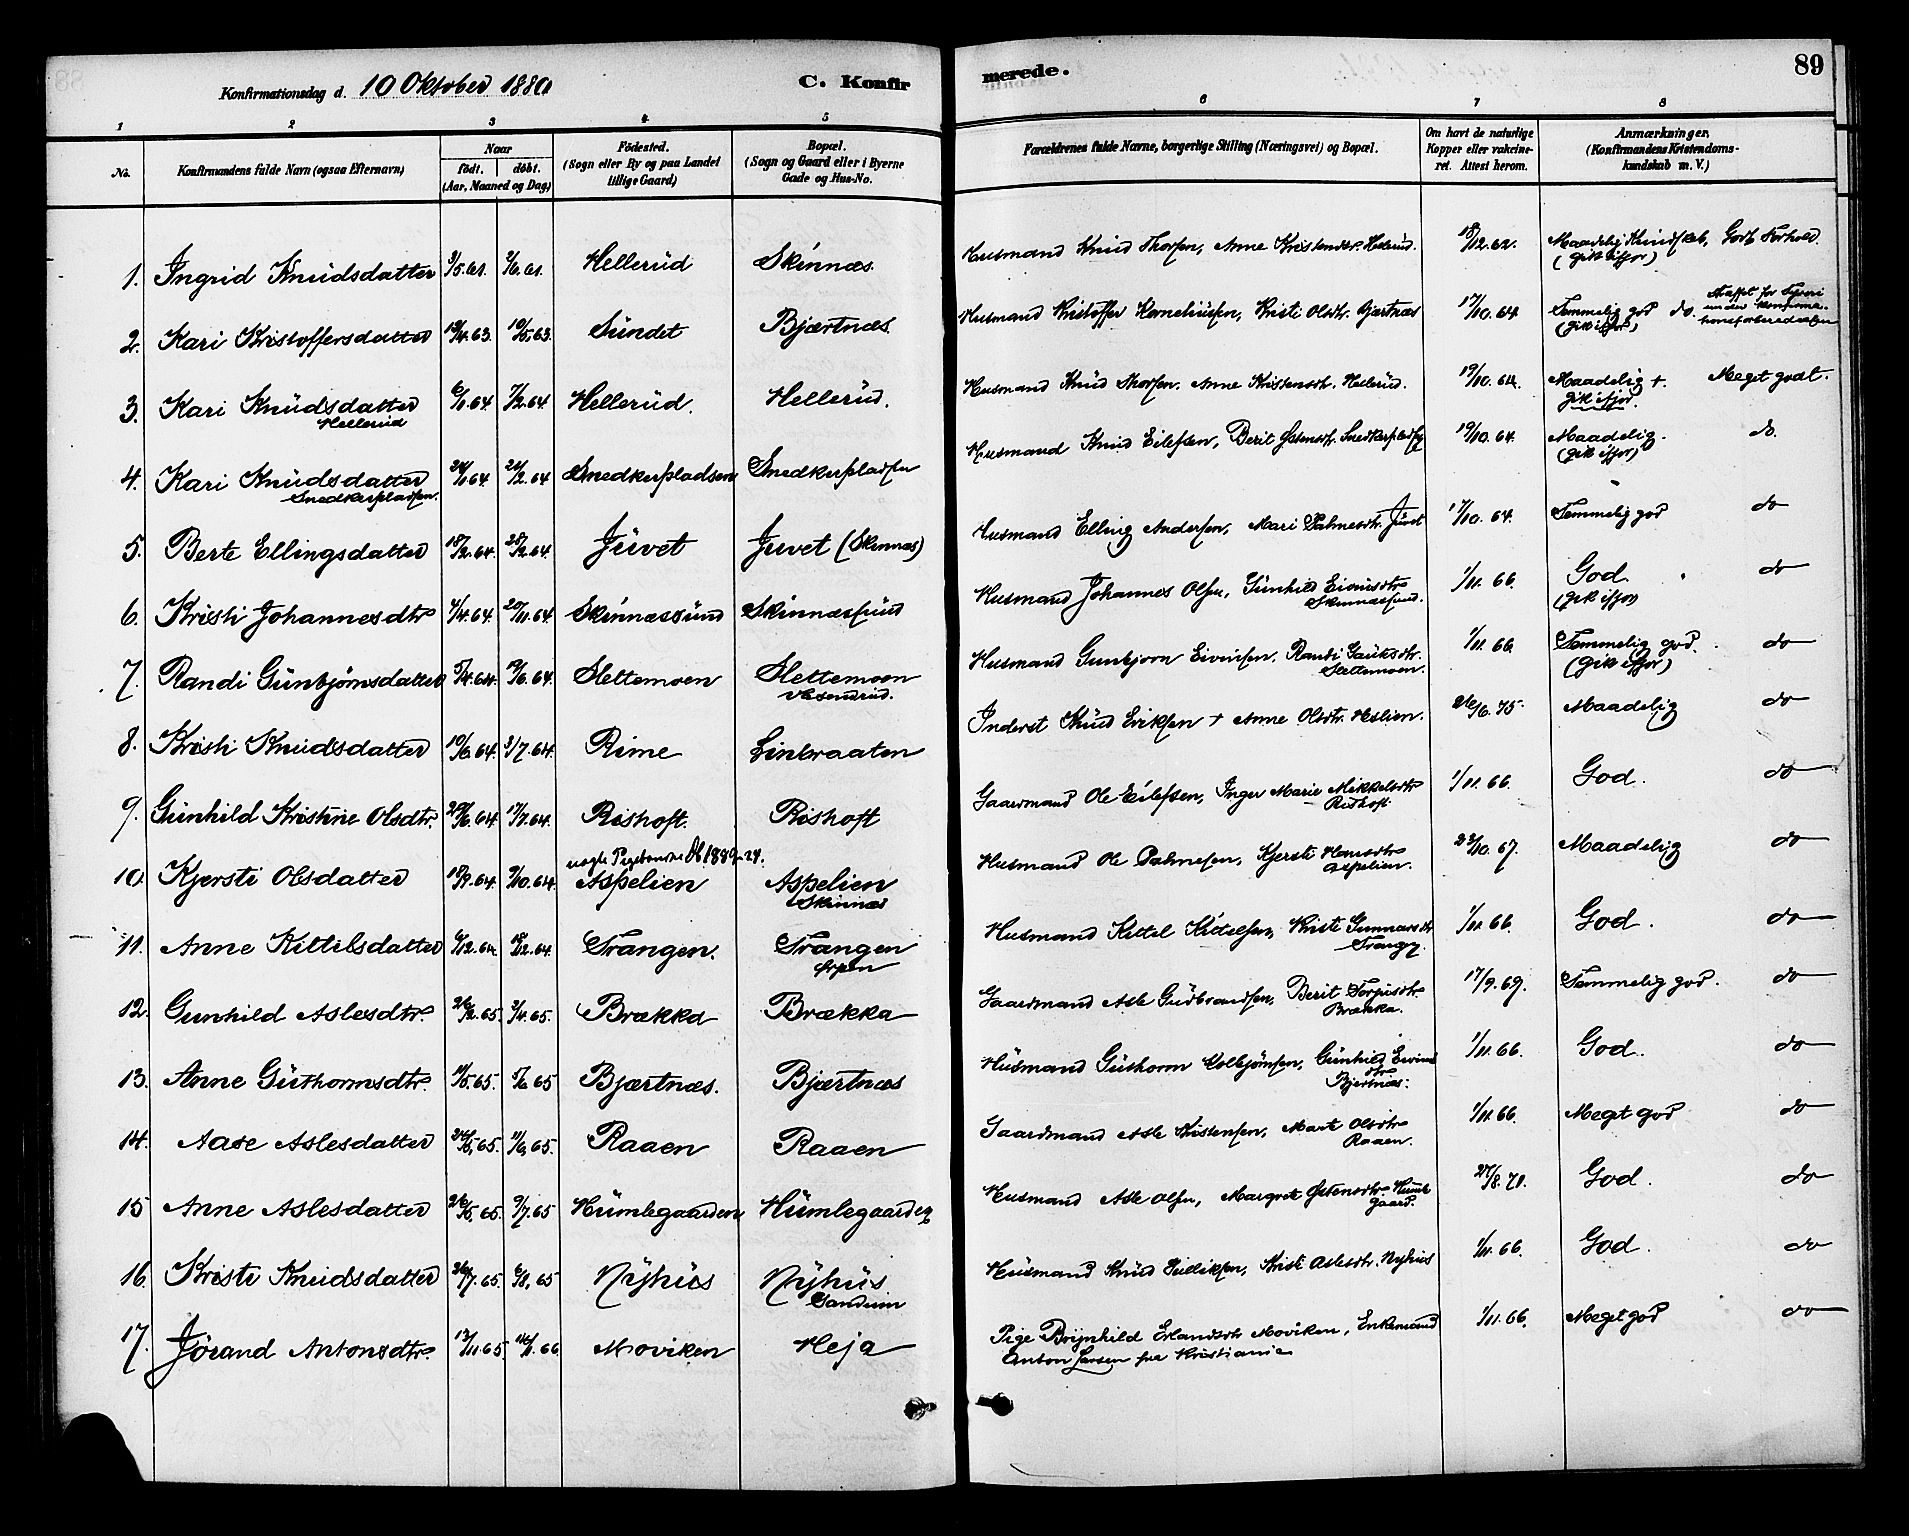 Konfirmationsdag d. 10 Oktober 1880
C. Konfir
merede.
89
1 2 3 4 5 6 7 8
No.
Konfirmandens fulde Navn (ogsaa Efternavn)
Naar
født. døbt.
(Aar, Maaned og Dag)
Fødested.
(Sogn eller By og paa Landet
tillige Gaard)
Bopæl.
(Sogn og Gaard eller i Byerne
Gade og Hus-No.
Forældrenes fulde Navne, borgerlige Stilling (Næringsvei) og Bopæl.
Om havt de naturlige
Kopper eller vakcine-
ret. Attest herom.
Anmærkninger,
(Konfirmandens Kristendoms-
kundskab m. V.)
1. Ingrid Knudsdatter 3/5.61. 2/6.61. Hellerud Skinnæs. Husmand Knud Thorsen, Anne Kristensdtr. Hellerud. 18/12.62. Maadelig Kundskab, Godt Forhold.
(gik ifjor)
2. Kari Kristoffersdatter 19/4.63. 10/5.63. Sundet Bjærtnæs. Husmand Kristoffer Korneliussen, Kristi Olsdtr. Bjertnæs 17/10.64. Temmelig god do. Straffet for Tyveri
(gik ifjor) under Konfirma-
tionsforberedelsen
3. Kari Knudsdatter 6/1.64. 7/2.64. Hellerud. Hellerud. Husmand Knud Thorsen. Anne Kristensdtr. Hellerud. 19/10.64. Maadelig + Meget godt.
Hellerud gik ifjor.
4. Kari Knudsdatter 24/1.64 21/2.64 Snedkerpladsen Snedkerpladsen Husmand Knud Eilefsen, Berit Østensdtr. Snedkerpladsen 19/10.64. Maadelig. do.
Snedkerpladsen. (gik ifjor)
5. Berte Ellingsdatter 18/2.64. 28/2.64. Juvet Juvet (Skinnæs) Husmand Elling Andersen, Mari Palmesdtr. Juvet 17/10.64. Temmelig god do
6. Kristi Johannesdtr 4/11.64. 20/11.64. Skinnæssund Skinnæssund Husmand Johannes Olsen, Gunhild Eivindsdtr 1/11.66. God do
Skinnæssund. (gik ifjor)
7. Randi Gunbjørnsdatter 5/4.64. 19/6.64. Slettemoen Slettemoen Husmand Gunbjørn Eivinsen. Randi Gauksdtr. 1/11.66. Temmelig god. do
Slettemoen. (gik ifjor)
8. Kristi Knudsdatter 10/6.64. 3/7.64. Rime Linbraaten Inderst Knud Eriksen + Anne Olsdtr. Heslien. 26/6.75. Maadelig do
9. Gunhild Kristine Olsdtr. 29/6.64. 17/7.64. Rishoft. Rishoft Gaardmand Ole Eilefsen, Inger Marie Mikkelsdtr 1/11.66. God. do
Rishoft
10. Kjersti Olsdatter 18/9.64. 9/10.64. Aspelien Aspelien Husmand Ole Palmesen, Kjersti Hansdtr 23/10.67. Maadelig do
Skinnæs Aspelien.
11. Anne Kittilsdatter 6/12.64. 18/12.64. Trangen. Trangen Husmand Kittel Kittelsen, Kristi Gunnarsdtr 1/11.66. God. do
12. Gunhild Aslesdtr. 26/2.65. 2/4.65. Brækka Brækka Gaardmand Asle Gudbrandsen, Berit Torgusdtr. 17/9.69. Temmelig god. do
Brækka.
13. Anne Guthormsdtr. 11/5.65. 5/6.65 Bjærtnæs. Bjærtnæs Husmand Guthorm Kolbjørnsen, Gunhild Eivinds 1/11.66. God. do
dtr
Bjertnæs.
14. Aase Aslesdatter 24/5.65. 11/6.65. Raaen Raaen Gaardmand Asle Kristensen, Marte Olsdtr 1/11.66. Meget god do
Raaen.
15 Anne Aslesdatter 26/5.65. 9/7.65 Humlegaarden Humlegaarden Husmand Asle Olsen, Margrete Østensdtr. Humle 27/8.71. God. do
gaard.
16. Kristi Knudsdatter 26/7.65. 6/8.65 Nyhus Nyhus Husmand Knud Sulliksen, Kristi Aslesdtr. Nyhus 1/11.66. God. do
17. Jørand Antonsdtr. 13/11.65. 14/1.66 Moviken Heja Pige Brynhild Erlandsdtr Moviken, Enkemand 1/11.66. Meget god do
Anton Larsen fra Kristiania